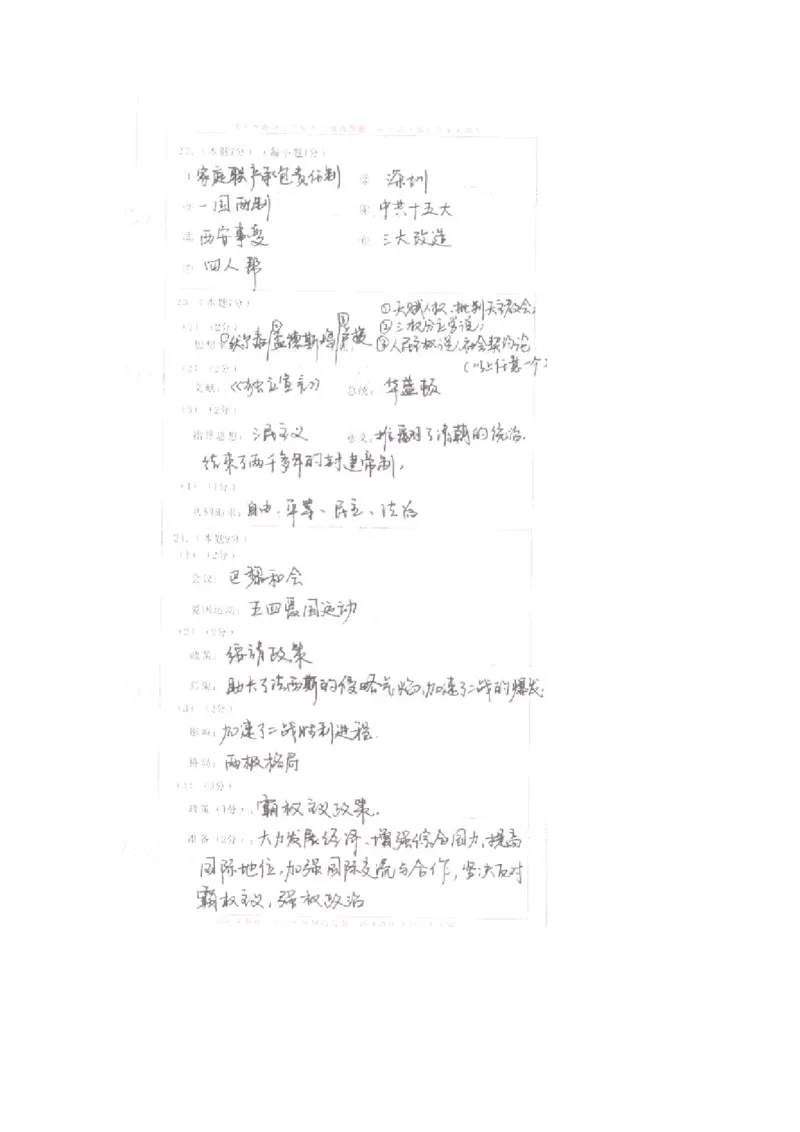 22.（本题7分）（每小题1分）
① 家庭联产承包责任制 ② 深圳
③ 一国两制 ④ 中共十五大
⑤ 西安事变 ⑥ 三大改造
⑦ 四人帮
23.（本题7分）
①天赋人权、批判天主教会;
(1)（2分） ②三权分立学说;
思想 ①伏尔泰 ②孟德斯鸠 ③卢梭 ③人民主权说,社会契约论
(以上任意一个)
(2)（2分）
文献：《独立宣言》 总统：华盛顿
(3)（2分）
指导思想：三民主义 意义：推翻了清朝的统治.
结束了两千多年的封建帝制,
(4)（1分）
共同追求：自由、平等、民主、法治
24.（本题9分）
(1)（2分）
会议：巴黎和会
爱国运动：五四爱国运动
(2)（2分）
政策：绥靖政策
后果：助长了法西斯的侵略气焰,加速了二战的爆发;
(3)（2分）
影响：加速了二战胜利进程.
格局：两极格局
(4)（3分）
政策（1分）：霸权主义政策.
准备（2分）：大力发展经济、增强综合国力,提高
国际地位,加强国际交流与合作,坚决反对
霸权主义,强权政治